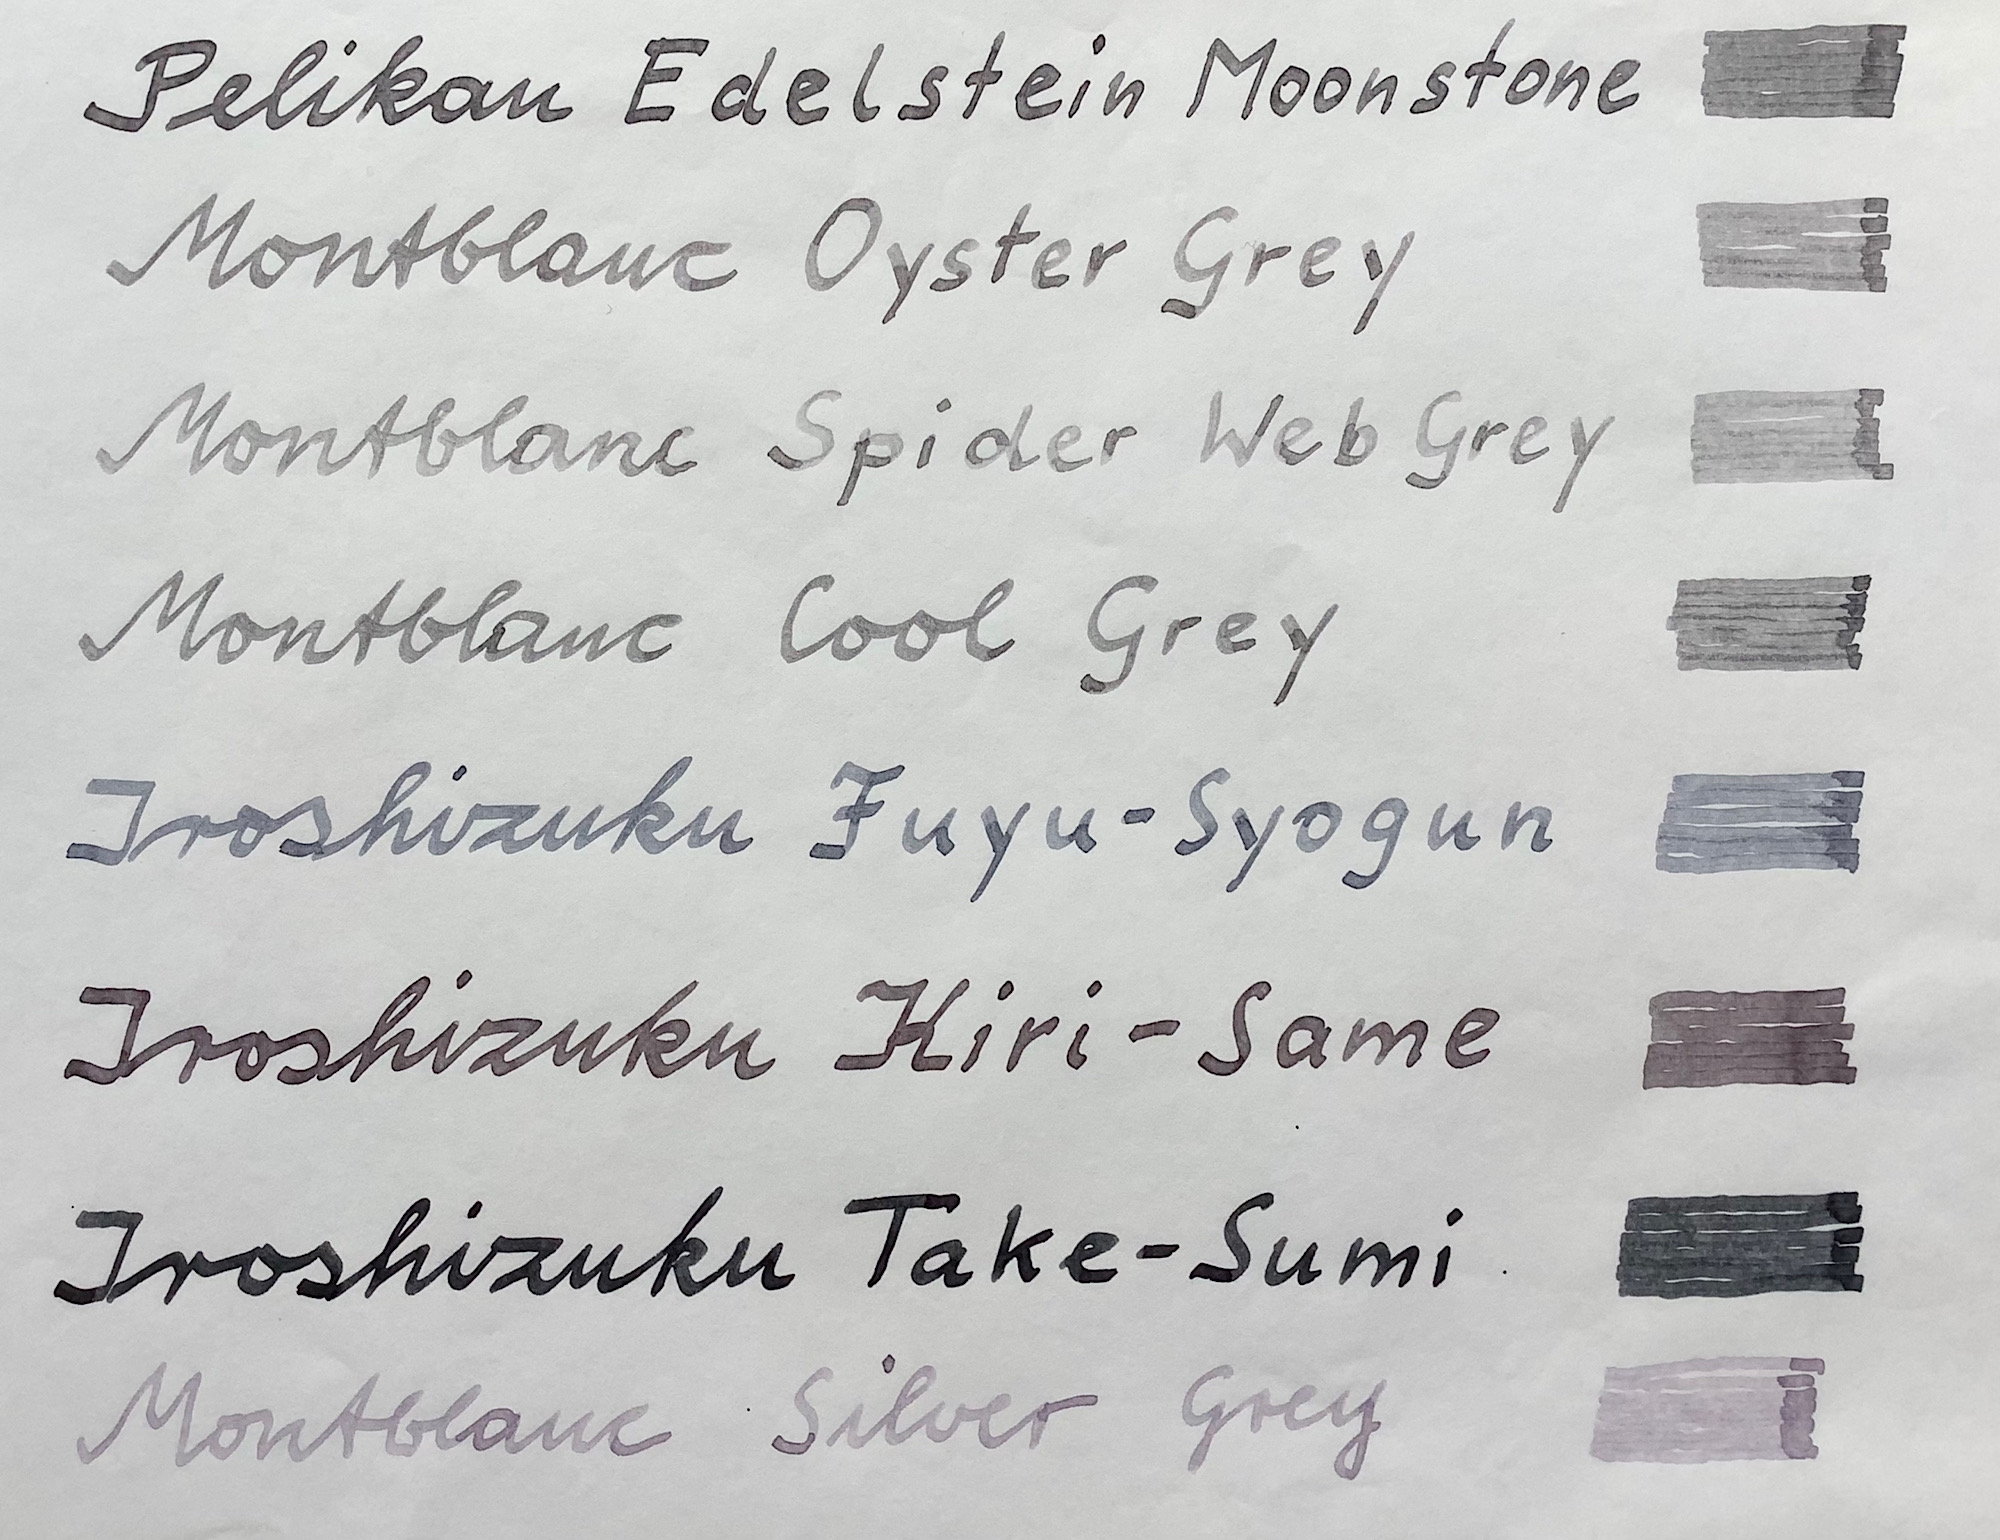 Pelikan Edelstein Moonstone
Montblanc Oyster Grey
Montblanc Spider Web Grey
Montblanc Cool Grey
Iroshizuku Fuyu-Syogun
Iroshizuku Kiri-Same
Iroshizuku Take-Sumi
Montblanc Silver Grey